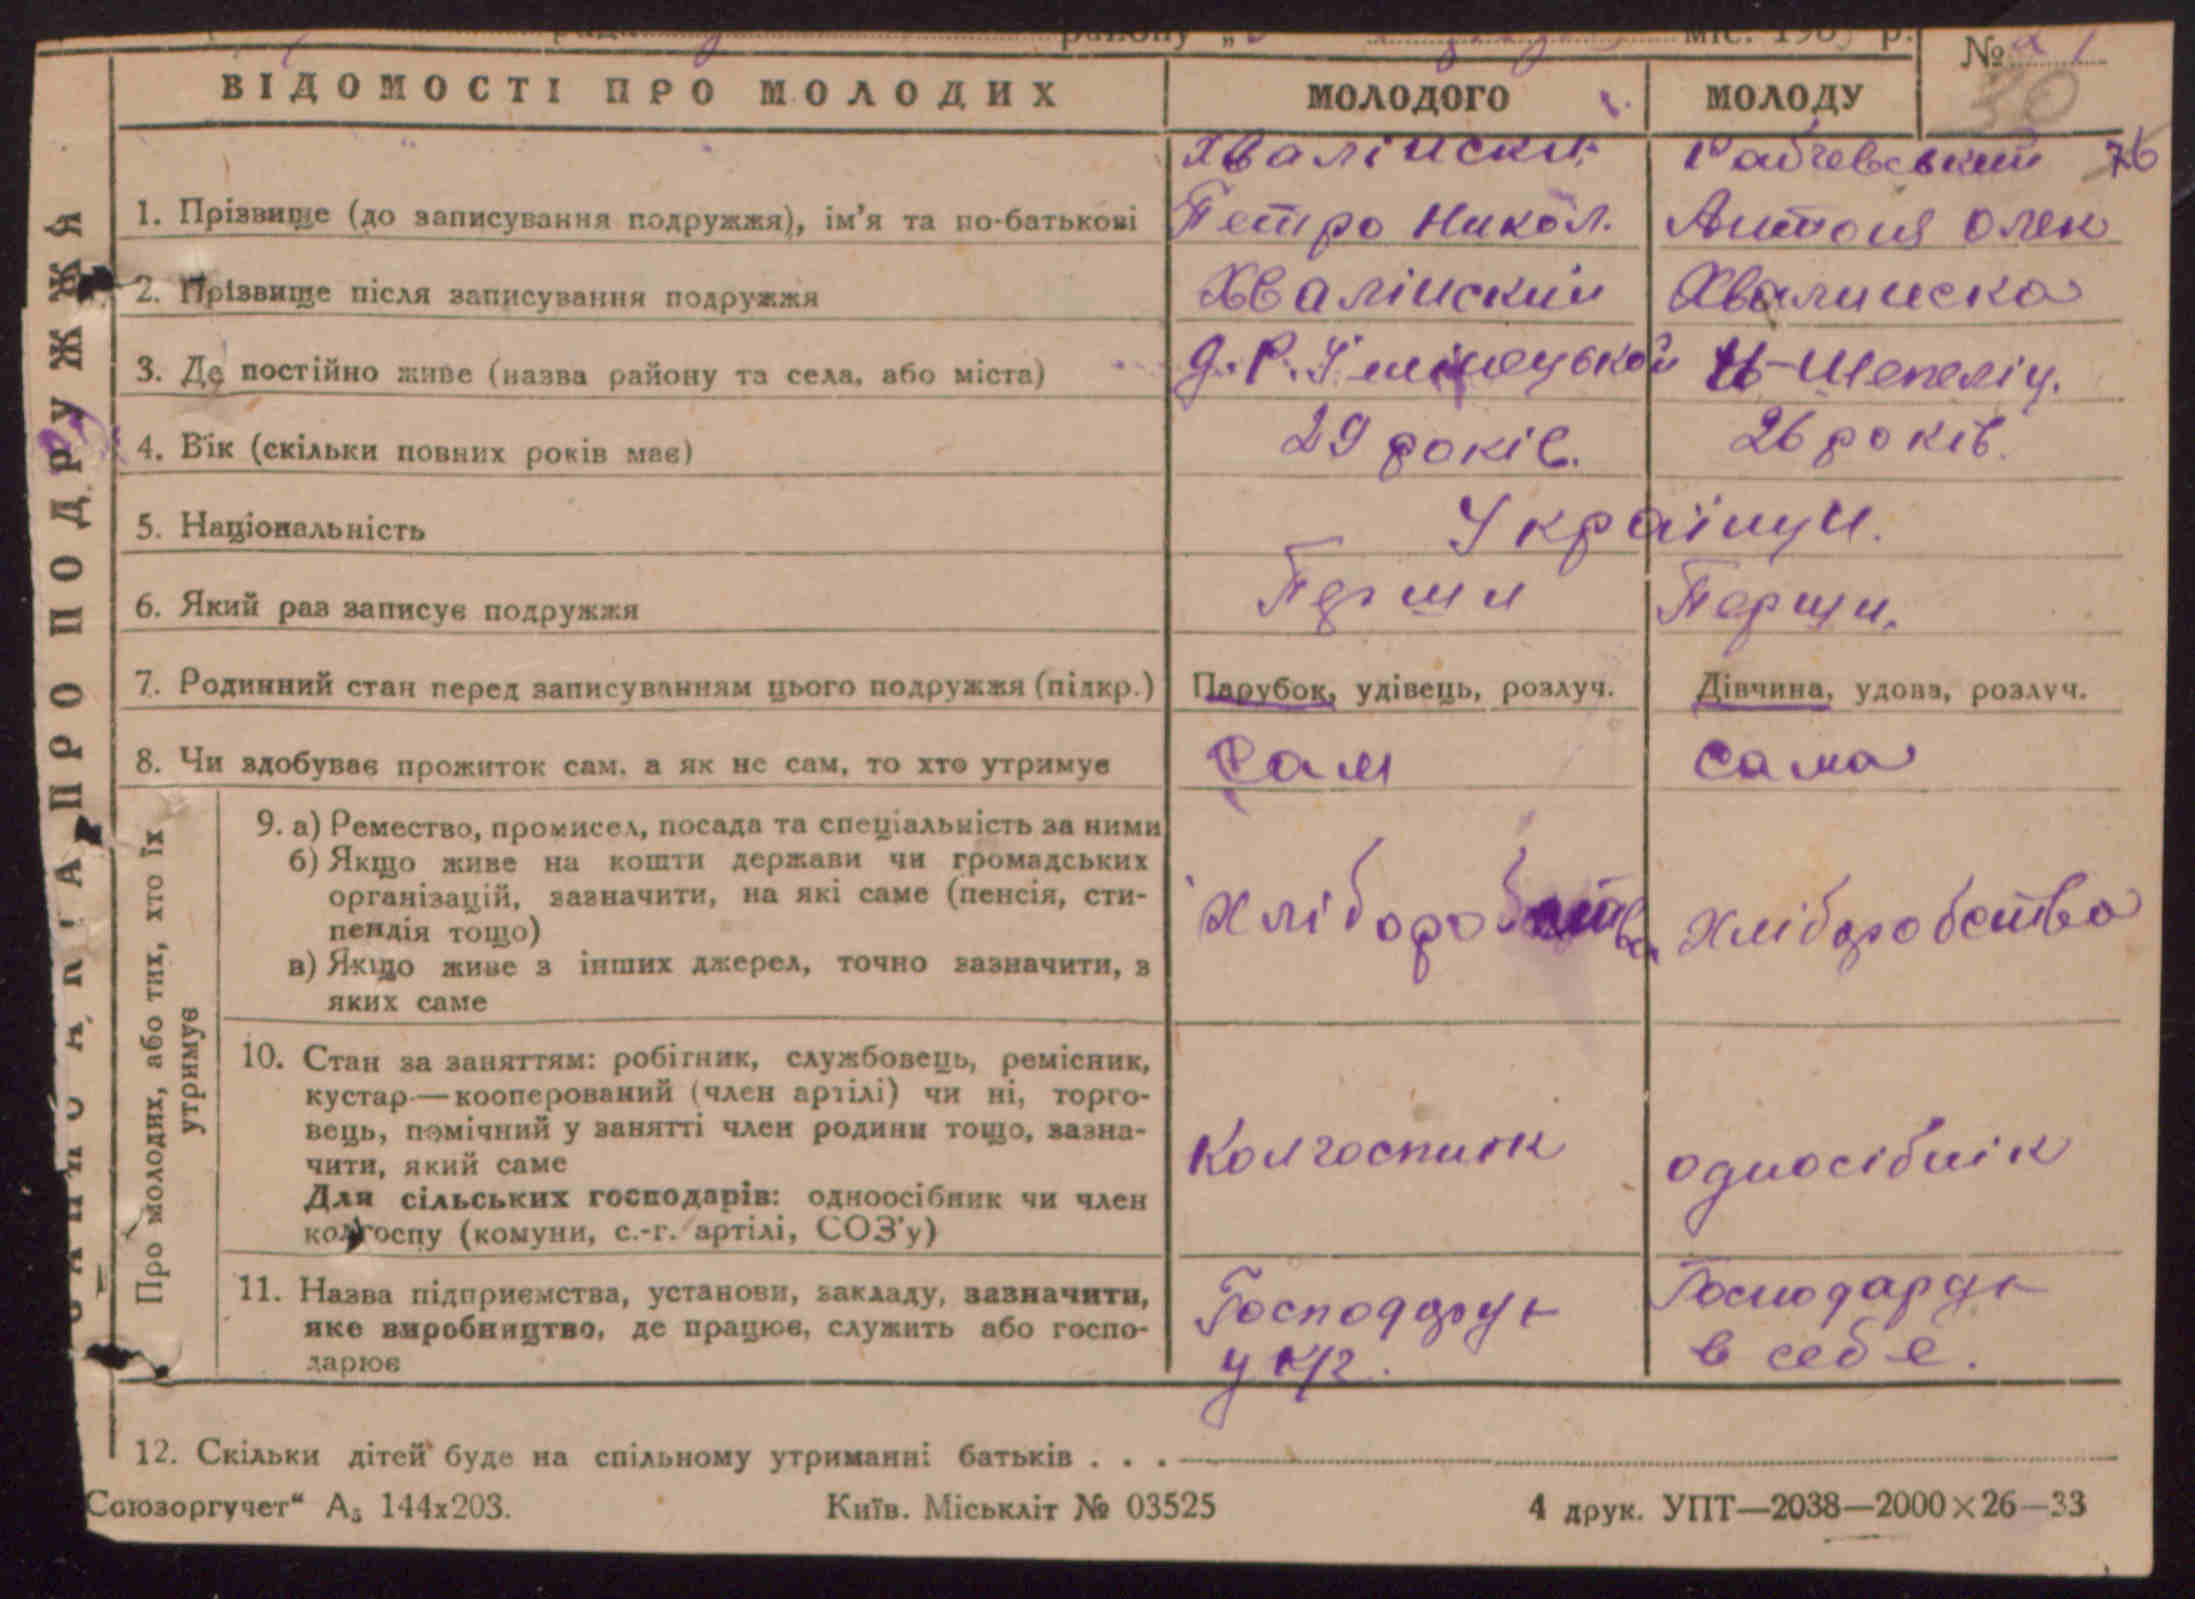 району „ міс. 193 р.
№ 21
30
ВІДОМОСТІ ПРО МОЛОДИХ МОЛОДОГО МОЛОДУ
76
Хвалінский
1. Прізвище (до записування подружжя), ім'я та по-батькові Петро Никол. Антоня Олек
2. Прізвище після записування подружжя Хвалінский Хвалинска
3. Де постійно живе (назва району та села, або міста) Н-Шепеліч.
4. Вік (скільки повних років має) 29 років. 26 років.
5. Національність Українци.
6. Який раз записує подружжя Перши Перши.
7. Родинний стан перед записуванням цього подружжя (підкр.) Парубок, удівець, розлуч. Дівчина, удова, розлуч.
8. Чи здобуває прожиток сам, а як не сам, то хто утримує Сам Сама
Про молодих, або тих, хто їх
утримує
9. а) Ремество, промисел, посада та спеціальність за ними
б) Якщо живе на кошти держави чи громадських
організацій, зазначити, на які саме (пенсія, сти-
пендія тощо)
в) Якщо живе з інших джерел, точно зазначити, з
яких саме
Хліборобства Хліборобство
10. Стан за заняттям: робітник, службовець, ремісник,
кустар—кооперований (член артілі) чи ні, торго-
вець, помічний у занятті член родини тощо, зазна-
чити, який саме
Для сільських господарів: одноосібник чи член
колгоспу (комуни, с.-г. артілі, СОЗ'у)
Колгоспник односібнік
11. Назва підприємства, установи, закладу, зазначити,
яке виробництво, де працює, служить або госпо-
дарює
Господарує
у к/г. в себе.
12. Скільки дітей буде на спільному утриманні батьків . . .
Союзоргучет“ А₅ 144х203. Київ. Міськліт № 03525 4 друк. УПТ—2038—2000×26—33
ПРО ПОДРУЖЖЯ